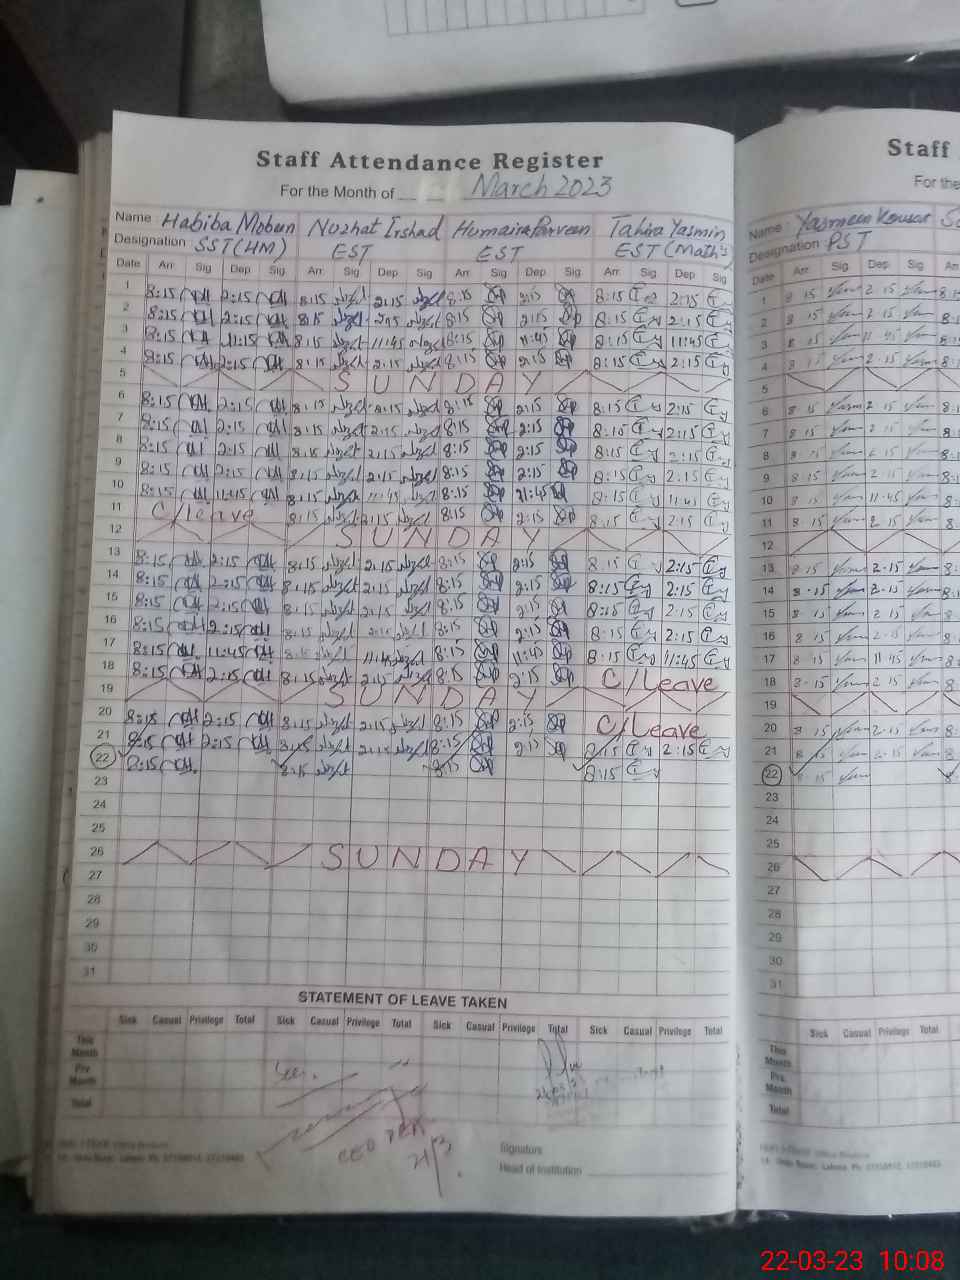 Staff Attendance Register
For the Month of March 2023
Name : Habiba Mobeen Nuzhat Irshad Humaira Parveen Tahira Yasmin
Designation SST (HM) EST EST EST (Math's)
Date Arr. Sig Dep Sig. Arr. Sig Dep Sig Arr Sig Dep Sig Arr Sig Dep Sig
1 8:15 2:15 8:15 2:15 8:15 2:15 8:15 2:15
2 8:15 2:15 8:15 2:15 8:15 2:15 8:15 2:15
3 8:15 11:15 8:15 11:45 8:15 11:45 8:15 11:45
4 8:15 2:15 8:15 2:15 8:15 2:15 8:15 2:15
5 SUNDAY
6 8:15 2:15 8:15 2:15 8:15 2:15 8:15 2:15
7 8:15 2:15 8:15 2:15 8:15 2:15 8:15 2:15
8 8:15 2:15 8:15 2:15 8:15 2:15 8:15 2:15
9 8:15 2:15 8:15 2:15 8:15 2:15 8:15 2:15
10 8:15 11:45 8:15 11:45 8:15 11:45 8:15 11:45
11 C/leave 8:15 2:15 8:15 2:15 8:15 2:15
12 SUNDAY
13 8:15 2:15 8:15 2:15 8:15 2:15 8:15 2:15
14 8:15 2:15 8:15 2:15 8:15 2:15 8:15 2:15
15 8:15 2:15 8:15 2:15 8:15 2:15 8:15 2:15
16 8:15 2:15 8:15 2:15 8:15 2:15 8:15 2:15
17 8:15 11:45 8:15 11:45 8:15 11:45 8:15 11:45
18 8:15 2:15 8:15 2:15 8:15 2:15 C/Leave
19 SUNDAY
20 8:15 2:15 8:15 2:15 8:15 2:15 C/Leave
21 8:15 2:15 8:15 2:15 8:15 2:15 8:15 2:15
22 8:15 8:15 8:15 8:15
23
24
25
26 SUNDAY
27
28
29
30
31
STATEMENT OF LEAVE TAKEN
Sick Casual Privilege Total Sick Casual Privilege Total Sick Casual Privilege Total Sick Casual Privilege Total
This Month
Prv Month
Total
Signature
Head of Institution
Staff
For the
Name : Yasmeen Kousar
Designation PST
Date Arr. Sig Dep Sig Arr
1 8 15 2 15
2 8 15 2 15
3 8 15 11 45
4 8 15 2 15
5
6 8 15 2 15
7 8 15 2 15
8 8 15 2 15
9 8 15 2 15
10 8 15 11 45
11 8 15 2 15
12
13 8 15 2 15
14 8 15 2 15
15 8 15 2 15
16 8 15 2 15
17 8 15 11 45
18 8 15 2 15
19
20 8 15 2 15
21 8 15 2 15
22 8 15
23
24
25
26
27
28
29
30
31
Sick Casual Privilege Total
This Month
Prv. Month
Total
22-03-23 10:08